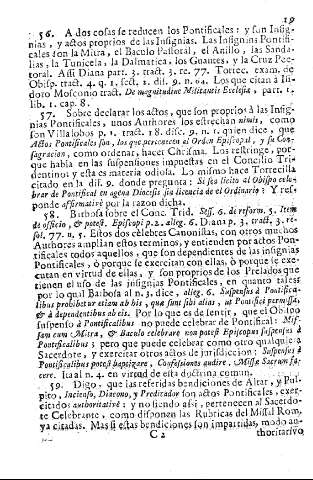 19
56. A dos cosas se reducen los Pontificales: y son Insig-
nias, y actos proprios de las Insignias. Las Insignins Pontifi-
cales son la Mitra, el Baculo Pastoral, el Anillo, las Sanda-
lias, la Tunicela, la Dalmatica, los Guantes, y la Cruz Pec-
toral. Assi Diana part. 3. tract. 3. re. 77. Torrec. exam. de
Obisp. tract. 4. q. 1. sect. 1. dif. 9. n. 64. Los que citan à Isi-
doro Mosconio tract. De magnitudine Militantis Ecclesiæ, part. 1.
lib. 1. cap. 8.
57. Sobre declarar los actos, que son proprios à las Insig-
nias Pontificales, unos Authores los estrechan nimis, como
son Villalobos p. 1. tract. 18. disc. 9. n. 1. quien dice, que
Actos Pontificales son, los que pertenecen al Orden Episcopal, y su Con-
sagracion, como ordenar, hacer Chrisma. Los restringe, por-
que habla en las suspensiones impuestas en el Concilio Tri-
dentino y esta es materia odiosa. Lo mismo hace Torrecilla
citado en la dif. 9. donde pregunta: Si sea licito al Obispo cele-
brar de Pontifical en agena Diocesis sin licencia de el Ordinario? Y res-
ponde affirmativè por la razon dicha.
58. Barbosa sobre el Conc. Trid. Sess. 6. de reform. 5. Item
de officio, & potest. Episcopi p. 2. alleg. 6. Diana p. 3. tract. 3. re-
sol. 77. n. 5. Estos dos celebres Canonistas, con otros muchos
Authores amplian estos terminos, y entienden por actos Pon-
tificales todos aquellos, que son dependientes de las insignias
Pontificales, ò porque se exercitan con ellas, ò porque se exe-
cutan en virtud de ellas, y son proprios de los Prelados que
tienen el uso de las insignias Pontificales, en quanto tales:
por lo qual Barbosa al n. 3. dice, alleg. 6. Suspensus à Pontifica-
libus prohibetur etiam ab his, quæ sunt sibi alias, ut Pontifici permissa,
& à dependentibus ab eis. Por lo que es de sentir, que el Obispo
suspenso à Pontificalibus no puede celebrar de Pontifical: Mis-
sam cum Mitra, & Baculo celebrare non potest Episcopus suspensus à
Pontificalibus; pero que puede celebrar como otro qualquiera
Sacerdote, y exercitar otros actos de jurisdiccion: Suspensus à
Pontificalibus potest baptizare, Confessiones audire, Missæ Sacrum fa-
cere. Ita al n. 4. en virtud de esta doctrina comun.
59. Digo, que las referidas bendiciones de Altar, y Pul-
pito, Incienso, Diacono, y Predicador son actos Pontificales, exer-
citidos authoritativè: y no siendo assi, pertenecen al Sacerdo-
te Celebrante, como disponen las Rubricas del Missal Rom,
ya citadas. Mas si estas bendiciones son impartidas, modo au-
C 2 thoritativo